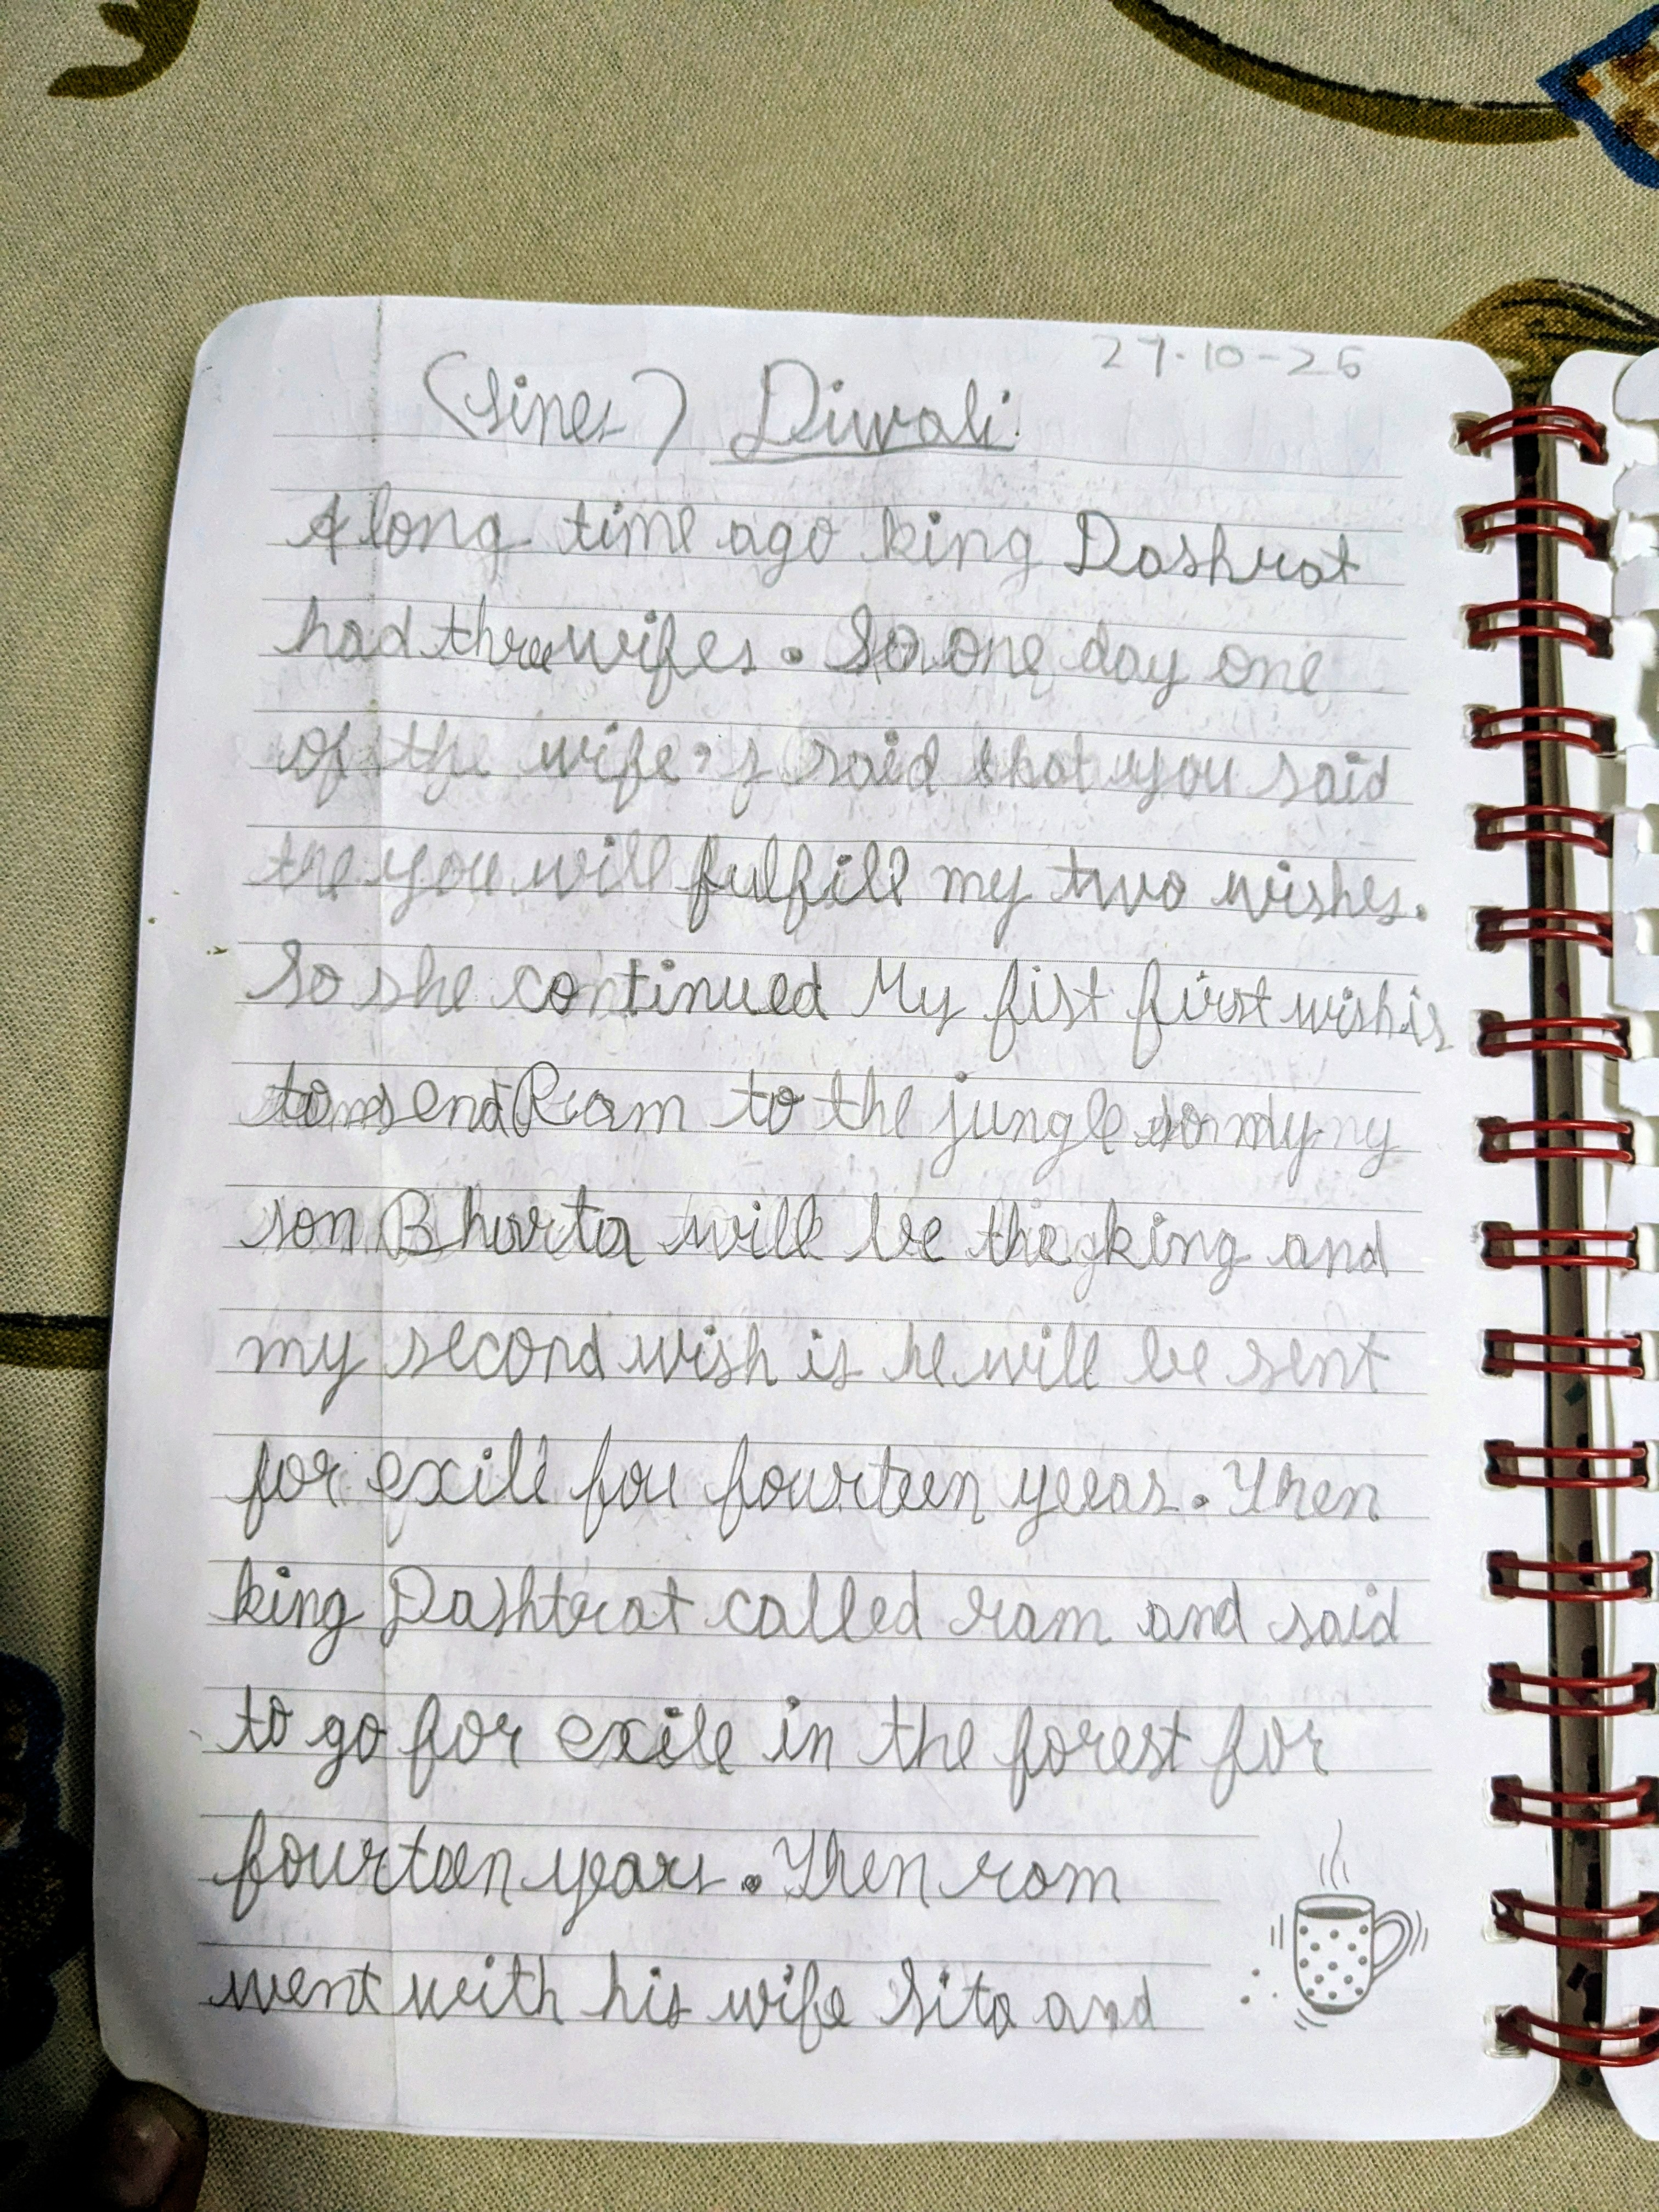 27-10-26
(sines) Diwali
A long time ago king Dashrat
had three wifes. So one day one
of the wife's said that you said
the you will fulfill my two wishes.
So she continued My fist first wish is
to send Ram to the jungle so my my
son Bharta will be the king and
my second wish is he will be sent
for exile for fourteen yeears. Then
king Dashtrat called ram and said
to go for exile in the forest for
fourteen years. Then ram
went with his wife Sita and